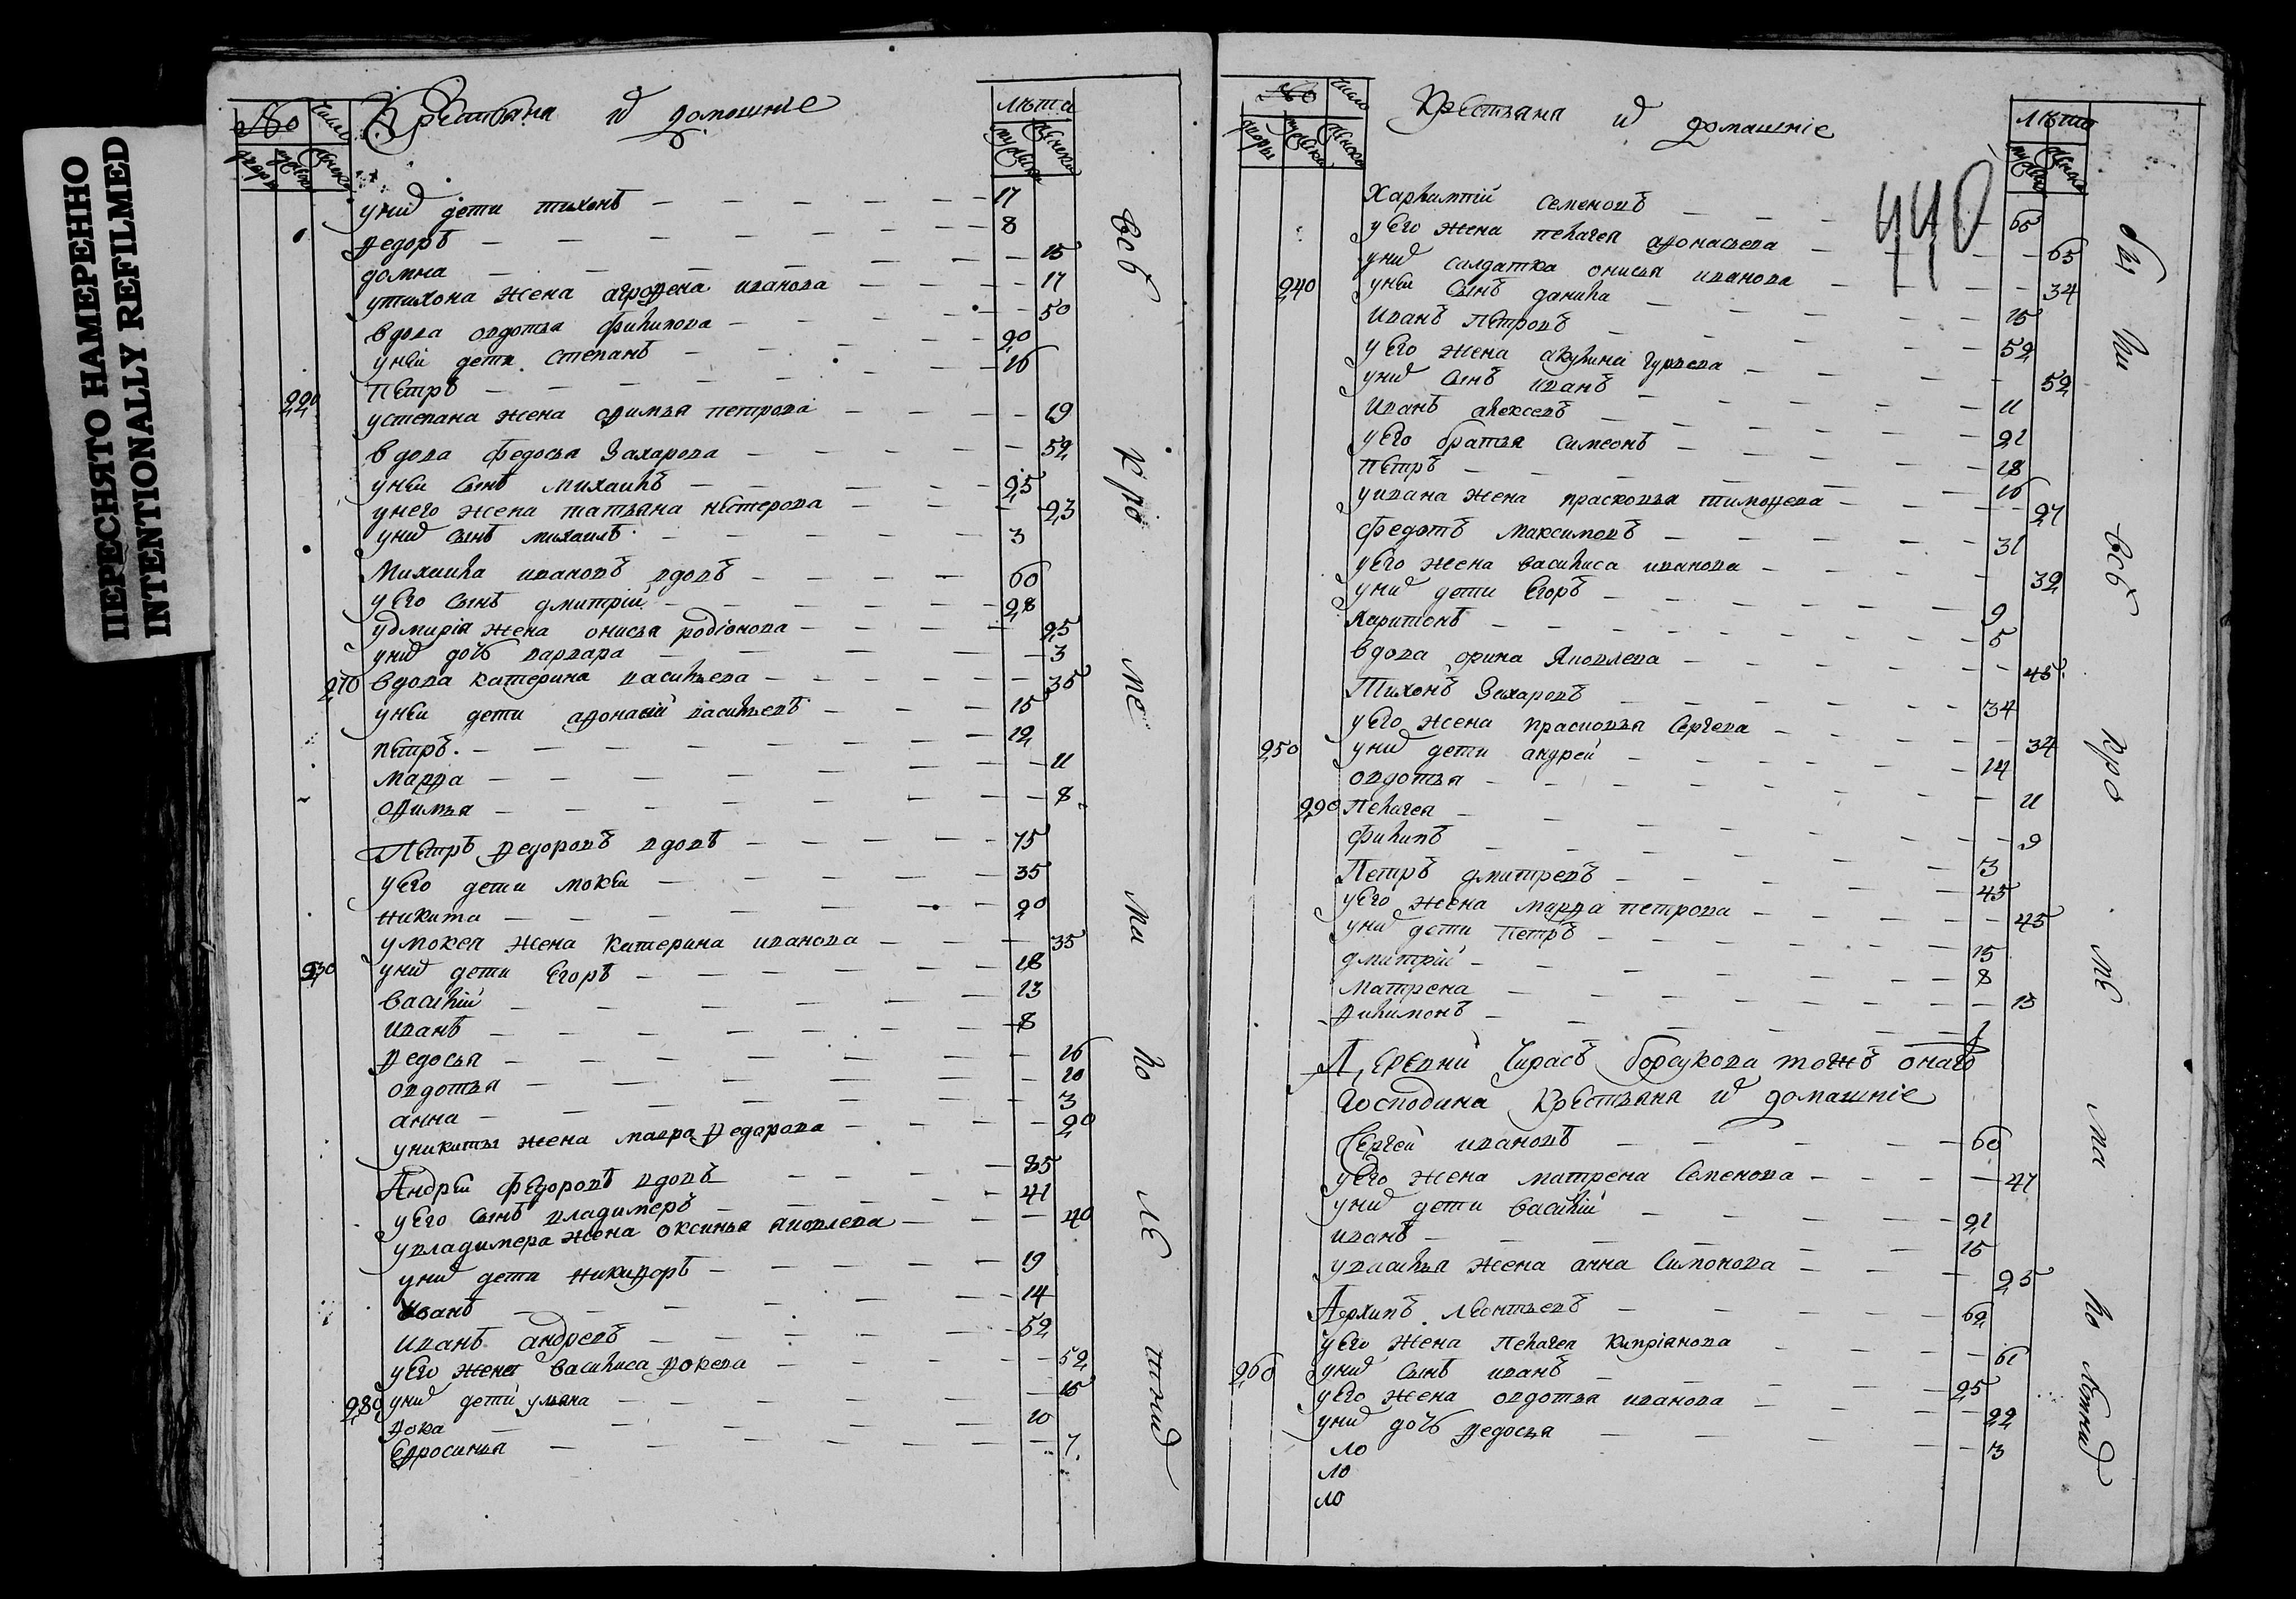 ПЕРЕСНЯТО НАМЕРЕННО
INTENTIONALLY REFILMED
№ Число Крестьяна и домашніе Лѣта
двор муж женск мужск женск
у них дети тихонъ — 17
федоръ — 8
домна — 15
у тихона жена агрофена иванова — 17
вдова овдотья филипова — 50
у ней дети степанъ — 20
Петръ — 16
220 у степана жена офимья петрова — 19
вдова федосья Захарова — 52
у ней сынъ михаилъ — 25
у него жена татьяна нестерова — 23
у них сынъ михаилъ — 3
Михаила ивановъ вдовъ — 60
у его сынъ дмитрій — 28
у дмирія жена онисья родіонова — 25
у них дочь варвара — 3
270 вдова катерина васильева — 35
у ней дети афонасій васильевъ — 15
петръ — 12
марфа — 11
офимья — 8
Петръ федоровъ вдовъ — 75
у его дети мокей — 35
никита — 20
у мокея жена катерина иванова — 35
230 у них дети егоръ — 18
василій — 13
иванъ — 8
федосья — 16
овдотья — 10
анна — 3
у никиты жена мавра федорова — 20
Андрей федоровъ вдовъ — 85
у его сынъ владимеръ — 41
у владимера жена оксинья яковлева — 40
у них дети никифоръ — 19
иванъ — 14
иванъ андревъ — 52
у его жена василиса фокева — 52
280 у них дети ульяна — 15
фока — 10
ефросинья — 7
всѣ кро ме ма ло лѣтних
№ Число Крестьяна и домашніе Лѣта
двор мужск женск муж женск
440
Харлампій семеновъ — 65
у его жена пелагея афонасьева — 65
у них салдатка онисья иванова — 34
240 у ней сынъ данила — 15
Иванъ Петровъ — 52
у его жена акулина гурьева — 52
у них сынъ иванъ — 11
Иванъ алексевъ — 21
у его братья симеонъ — 18
петръ — 16
у ивана жена прасковья тимофева — 27
Федотъ максимовъ — 31
у его жена василиса иванова — 32
у них дети егоръ — 9
Харитонъ — 5
вдова орина Яковлева — 45
Тихонъ Захаровъ — 34
у его жена прасковья Сергева — 34
250 у них дети андрей — 14
овдотья — 11
290 Пелагея — 9
филипъ — 3
Петръ дмитревъ — 45
у его жена марфа петрова — 45
у них дети петръ — 15
дмитрій — 8
матрена — 13
филимонъ — 1
Деревни борщукова тожъ онаго
Господина Крестьяна и домашніе
Сергей ивановъ — 60
у его жена матрена Семенова — 47
у них дети василій — 21
иванъ — 15
у василья жена анна Симонова — 25
Архипъ леонтьевъ — 62
у его жена Пелагея кипріанова — 61
260 у них сынъ иванъ — 25
у его жена овдотья иванова — 22
у них дочь федосья — 3
ло
ло
ло
бы ли всѣ кро ме ма ло лѣтних